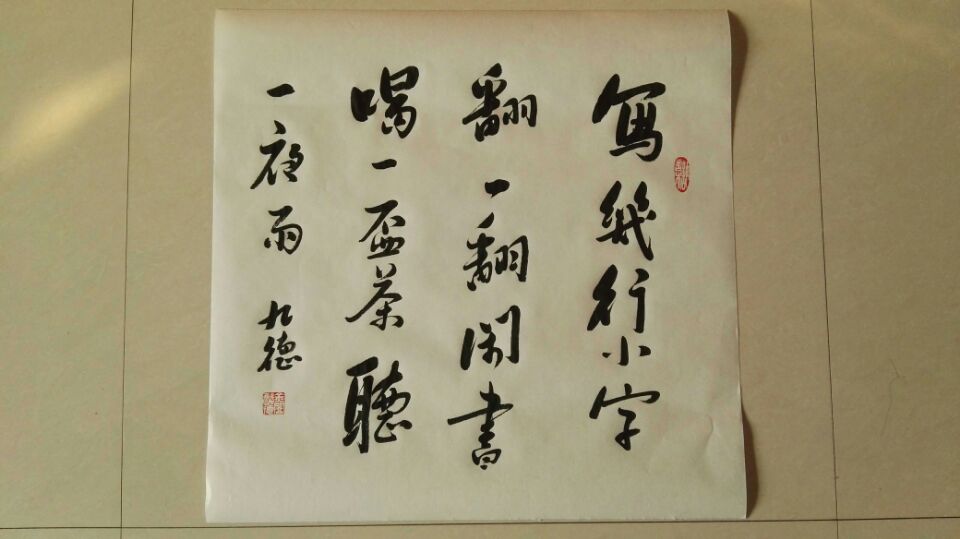 寫幾行小字
翻一翻閑書
喝一盃茶聽
一夜雨 九德